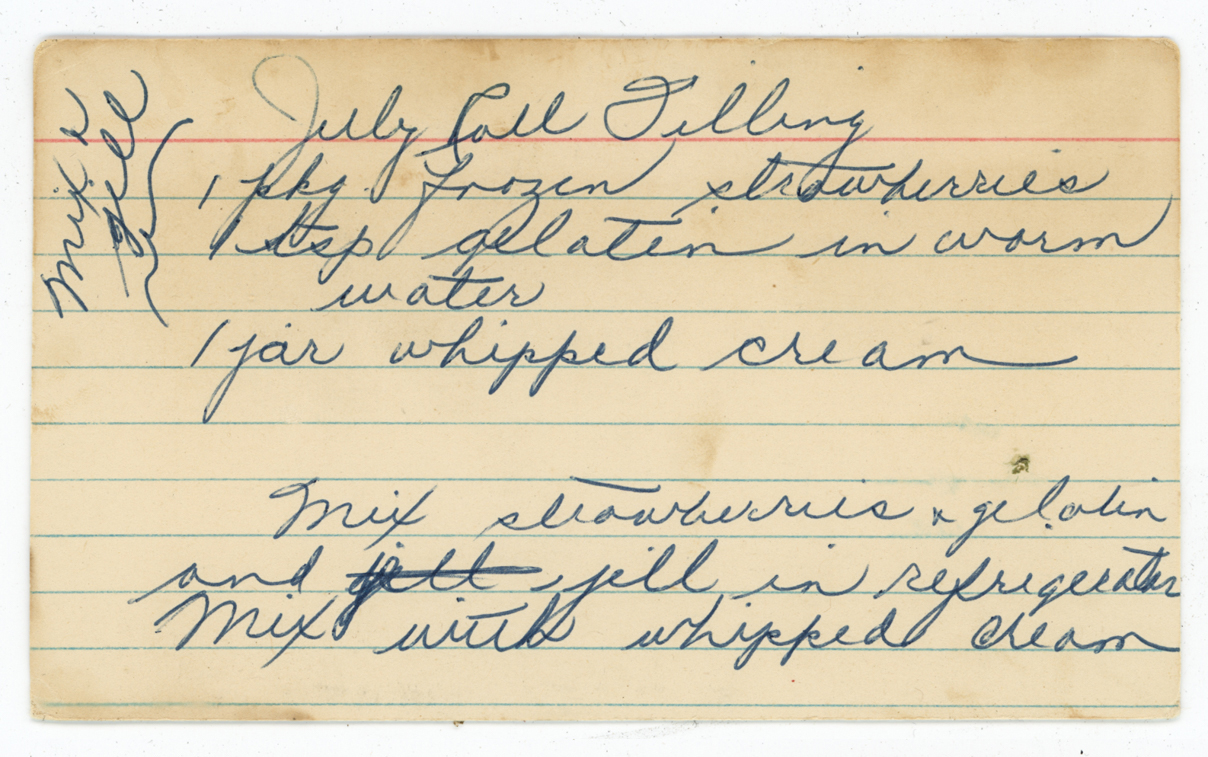 Jelly Roll Filling
Mix &
jell
1 pkg. frozen strawberries
1 tsp gelatin in warm
water
1 jar whipped cream
Mix strawberries & gelatin
and jell jell in refrigerator
Mix with whipped cream